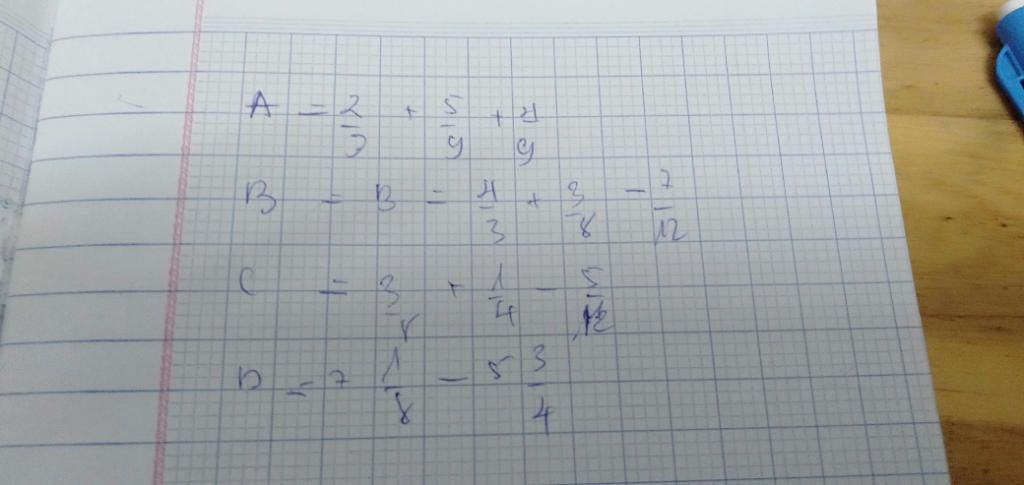 A = 2/3 + 5/9 + 4/9
B = B = 4/3 + 3/8 - 7/12
C = 3/8 + 1/4 - 5/12
D = 7 1/8 - 5 3/4